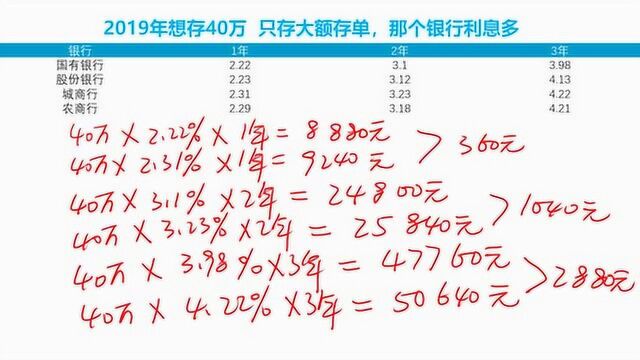 2019年想存40万 只存大额存单，那个银行利息多
银行 1年 2年 3年
国有银行 2.22 3.1 3.98
股份银行 2.23 3.12 4.13
城商行 2.31 3.23 4.22
农商行 2.29 3.18 4.21
40万×2.22%×1年=8880元
40万×2.31%×1年=9240元
>360元
40万×3.1%×2年=24800元
40万×3.23%×2年=25840元
>1040元
40万×3.98%×3年=47760元
40万×4.22%×3年=50640元
>2880元